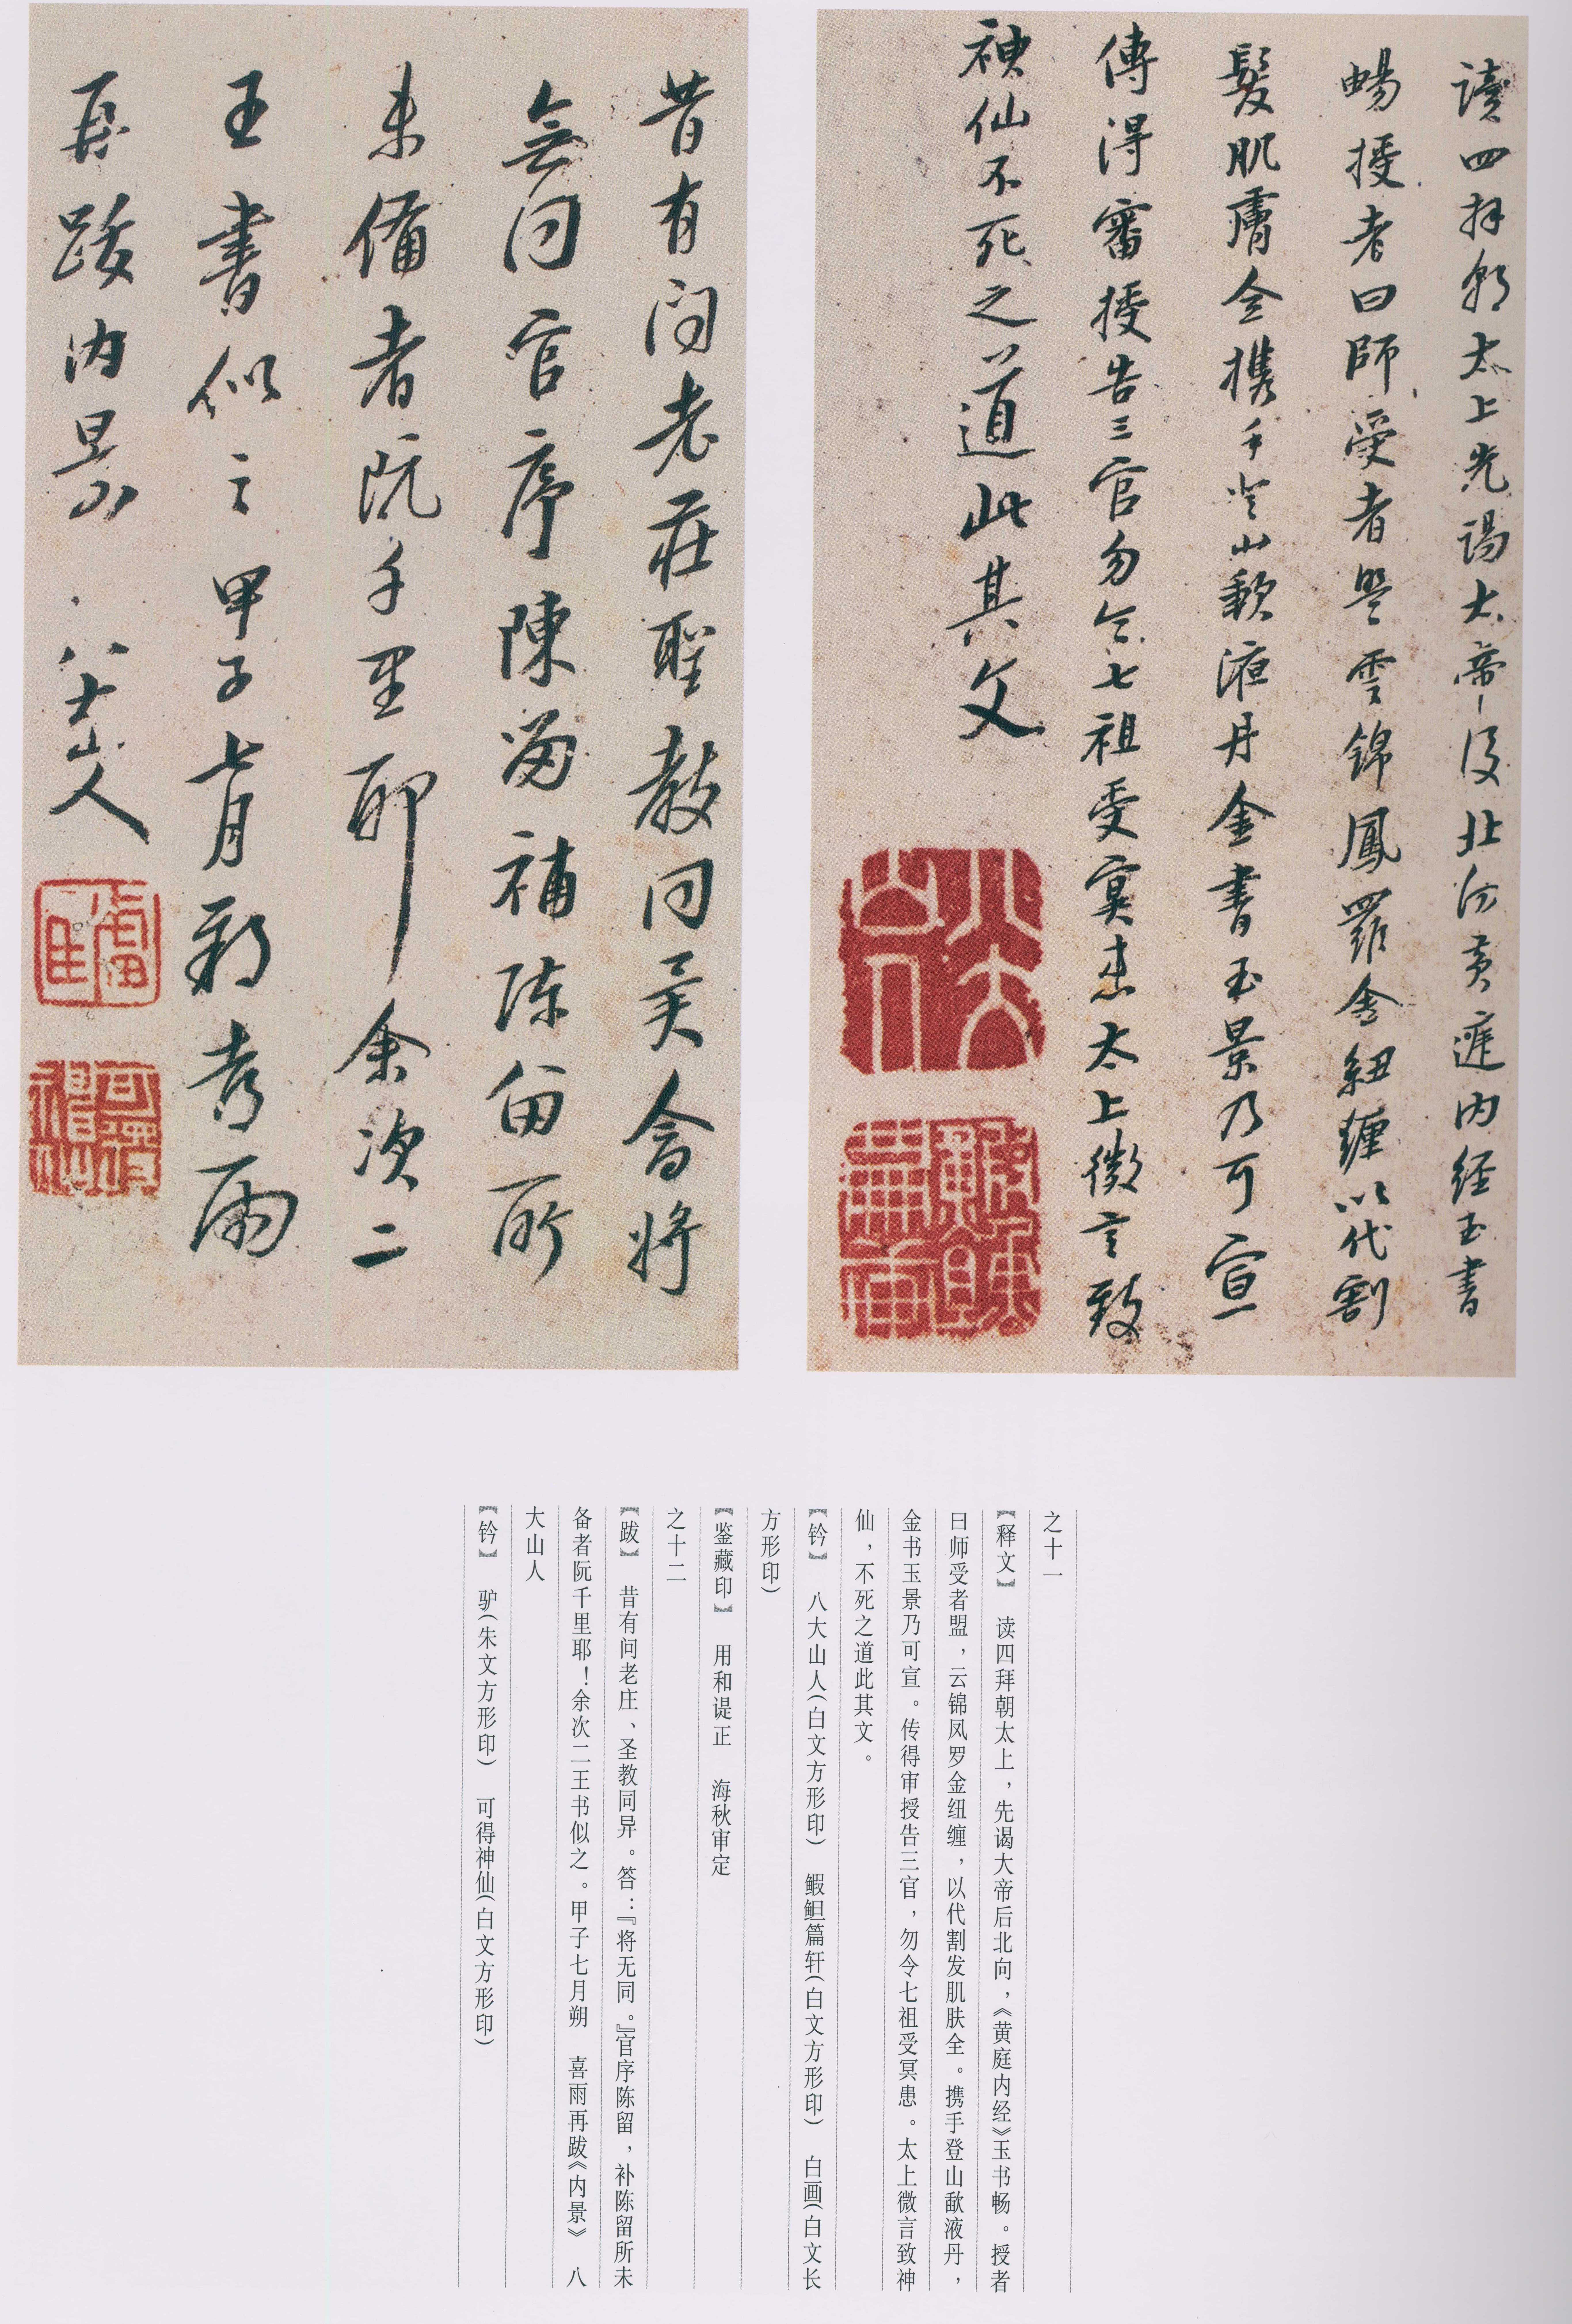 讀四拜朝太上先謁太帝後北向黃庭内經玉書
暢授者曰師受者盟雲錦鳳羅金紐纏以代割
髮肌膚全携手登山歃液丹金書玉景乃可宣
傳得審授告三官勿令七祖受冥患太上微言致
神仙不死之道此其文
昔有问老莊聖教同異答將
無同官序陳留補陳留所
未備者阮千里耶余次二
王書似之甲子七月朔喜雨
再跋内景 八大山人
八大山人
驴
可得神仙
之十一
【释文】 读四拜朝太上，先谒大帝后北向，《黄庭内经》玉书畅。授者
曰师受者盟，云锦凤罗金纽缠，以代割发肌肤全。携手登山歃液丹，
金书玉景乃可宣。传得审授告三官，勿令七祖受冥患。太上微言致神
仙，不死之道此其文。
【钤】 八大山人（白文方形印） 鰕䱇篇轩（白文方形印） 白画（白文长
方形印）
【鉴藏印】 用和諟正 海秋审定
之十二
【跋】 昔有问老庄、圣教同异。答：『将无同。』官序陈留，补陈留所未
备者阮千里耶！余次二王书似之。甲子七月朔 喜雨再跋《内景》 八
大山人
【钤】 驴（朱文方形印） 可得神仙（白文方形印）